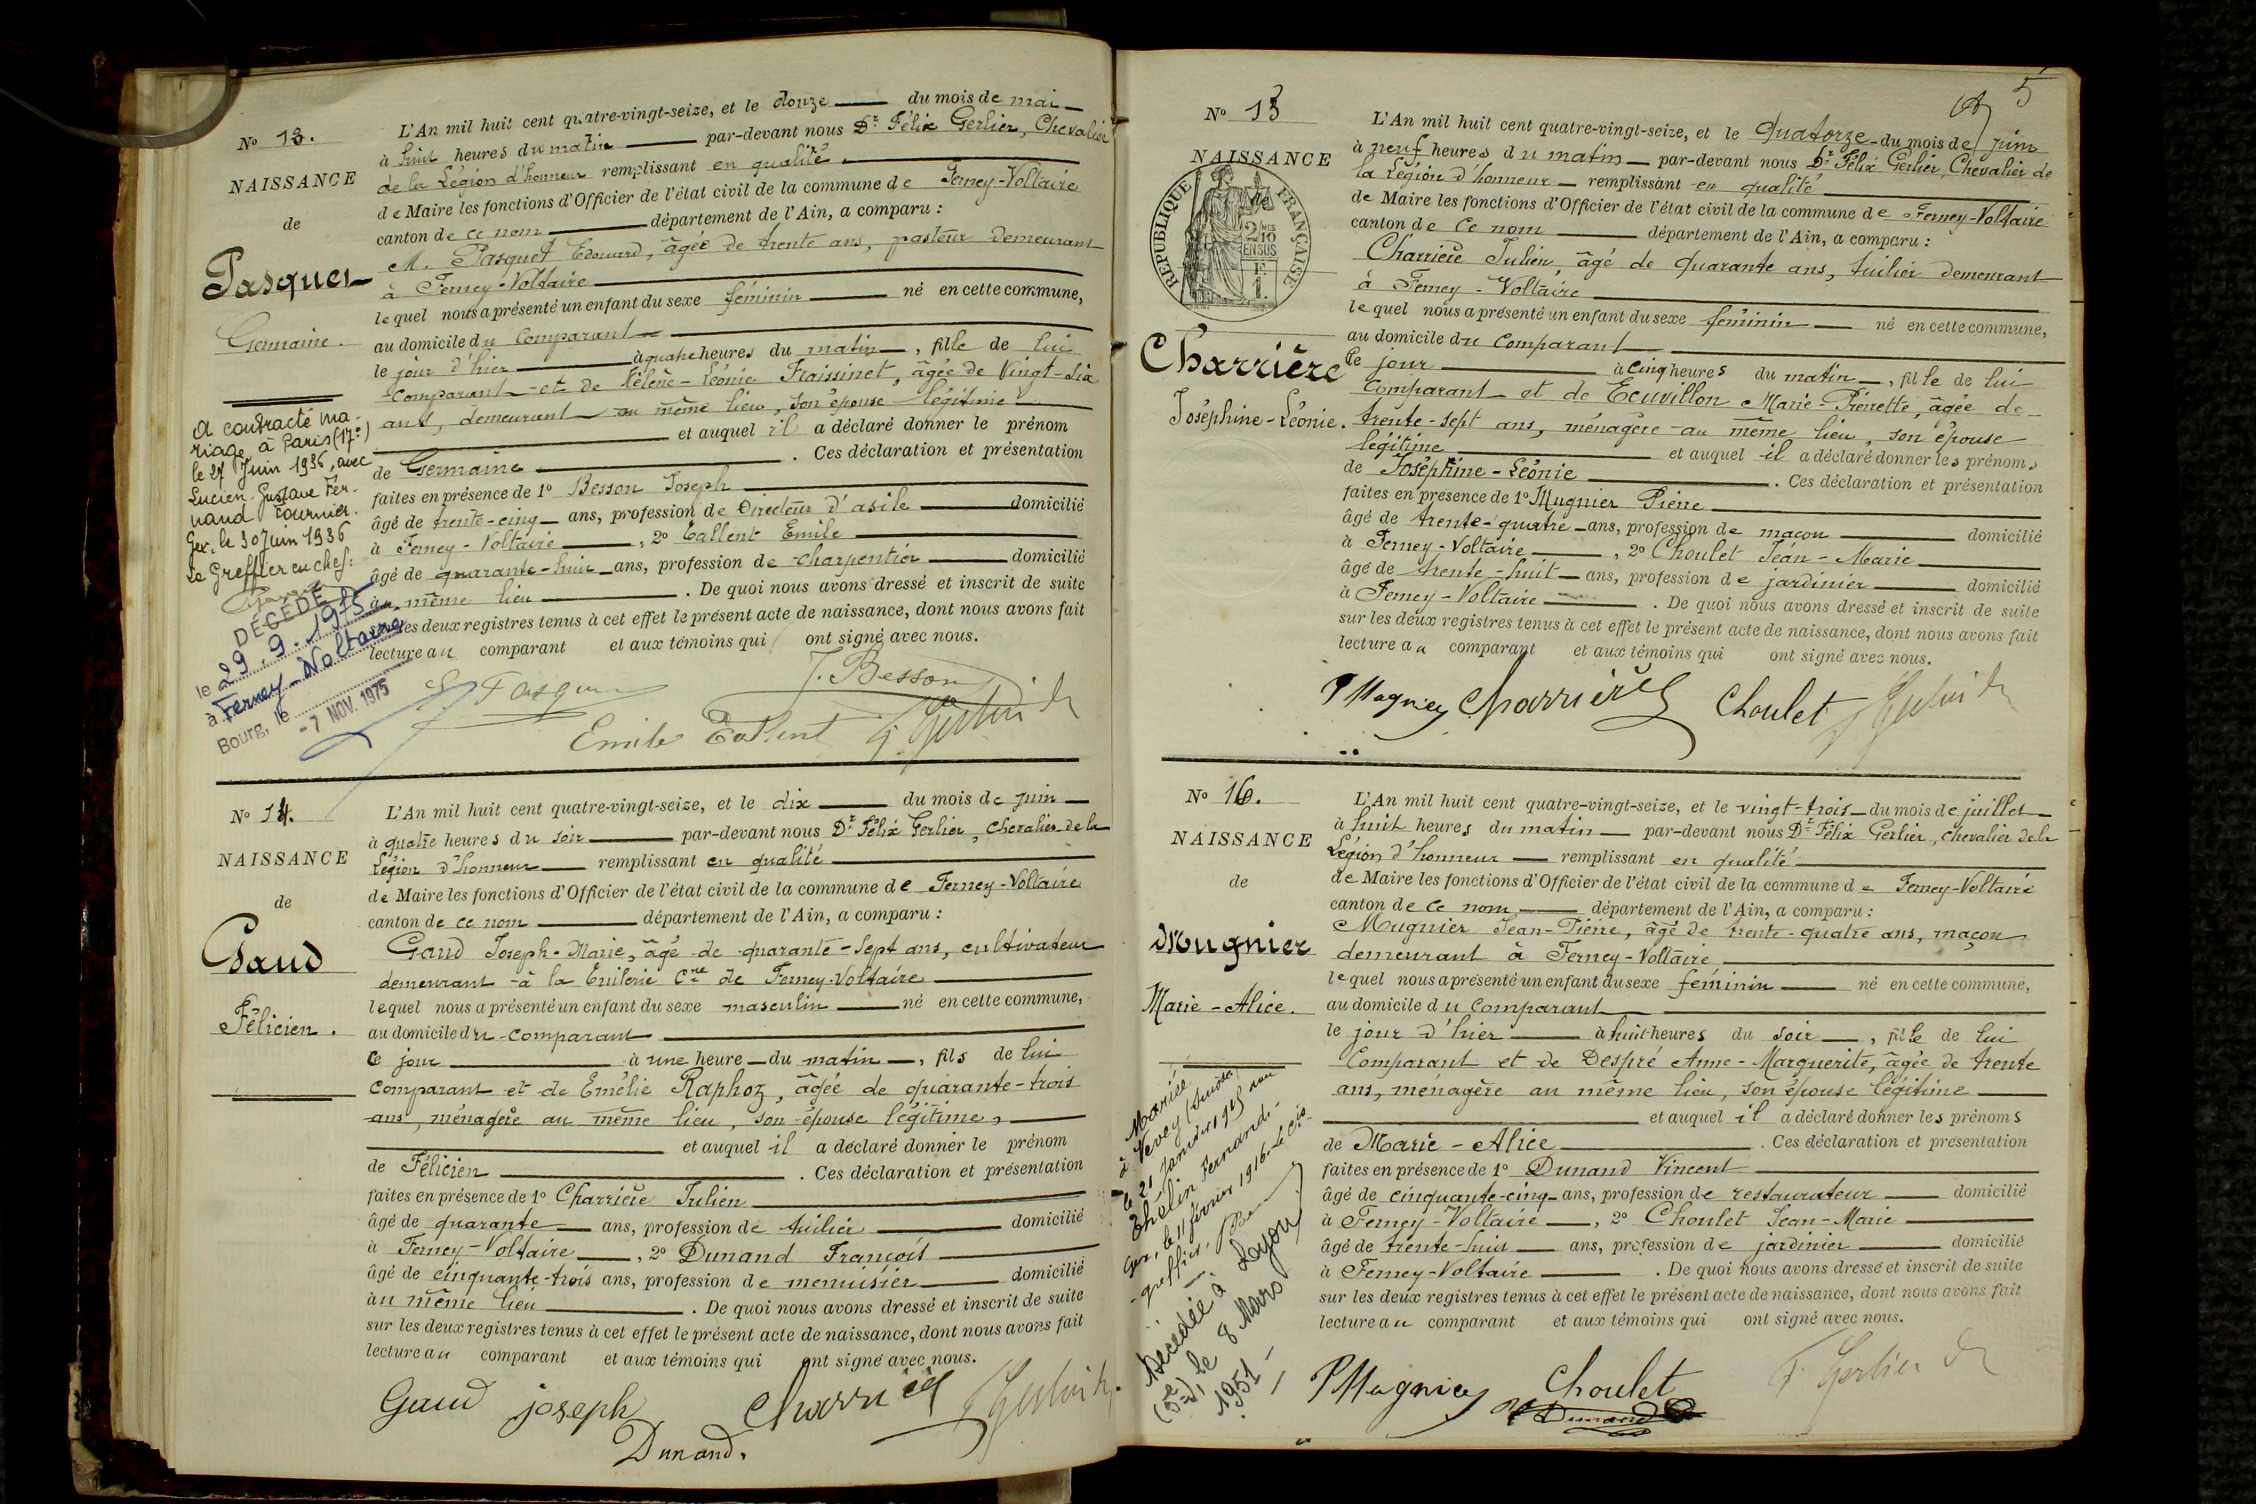 No 13.
NAISSANCE
de
Pasquet
Germaine.
L'An mil huit cent quatre-vingt-seize, et le douze du mois de mai
à huit heures du matin par-devant nous Dr Félix Gerlier, Chevalier
de la Légion d'honneur remplissant en qualité
de Maire les fonctions d'Officier de l'état civil de la commune de Ferney-Voltaire
canton de ce nom département de l'Ain, a comparu :
M. Pasquet Edouard, âgée de trente ans, pasteur demeurant
à Ferney-Voltaire
lequel nous a présenté un enfant du sexe féminin né en cette commune,
au domicile du comparant
le jour d'hier à quatre heures du matin, fille de lui
comparant et de Hélène-Léonie Fraissinet, âgée de vingt-six
ans, demeurant au même lieu, son épouse légitime
et auquel il a déclaré donner le prénom
de Germaine. Ces déclaration et présentation
faites en présence de 1º Besson Joseph
âgé de trente-cinq ans, profession de Directeur d'asile domicilié
à Ferney-Voltaire, 2º Tallent Emile
âgé de quarante-huit ans, profession de charpentier domicilié
au même lieu. De quoi nous avons dressé et inscrit de suite
sur les deux registres tenus à cet effet le présent acte de naissance, dont nous avons fait
lecture au comparant et aux témoins qui ont signé avec nous.
J. Besson
Emile Tallent
A contracté ma-
riage à Paris (17e)
le 27 Juin 1936, avec
Lucien-Gustave Fer-
nand Tournier.
Gex, le 30 Juin 1936
Le Greffier en chef:
DÉCÉDÉ
le 29.9.1975
à Ferney-Voltaire
Bourg, le
-7 NOV. 1975
No 14.
NAISSANCE
de
Gaud
Félicien.
L'An mil huit cent quatre-vingt-seize, et le dix du mois de juin
à quatre heures du soir par-devant nous Dr Félix Gerlier, Chevalier de la
Légion d'honneur remplissant en qualité
de Maire les fonctions d'Officier de l'état civil de la commune de Ferney-Voltaire
canton de ce nom département de l'Ain, a comparu :
Gaud Joseph-Marie, âgé de quarante-sept ans, cultivateur
demeurant à la Tuilerie Cne de Ferney-Voltaire
lequel nous a présenté un enfant du sexe masculin né en cette commune,
au domicile du comparant
Ce jour à une heure du matin, fils de lui
comparant et de Emélie Raphoz, âgée de quarante-trois
ans, ménagère au même lieu, son épouse légitime,
et auquel il a déclaré donner le prénom
de Félicien. Ces déclaration et présentation
faites en présence de 1º Charrière Julien
âgé de quarante ans, profession de tuilier domicilié
à Ferney-Voltaire, 2º Dunand François
âgé de cinquante-trois ans, profession de menuisier domicilié
au même lieu. De quoi nous avons dressé et inscrit de suite
sur les deux registres tenus à cet effet le présent acte de naissance, dont nous avons fait
lecture au comparant et aux témoins qui ont signé avec nous.
Gaud joseph
Dunand.
5
No 15
NAISSANCE
de
RÉPUBLIQUE FRANÇAISE
2/10 EN SUS
Charrière
Joséphine-Léonie.
L'An mil huit cent quatre-vingt-seize, et le Quatorze du mois de juin
à neuf heures du matin par-devant nous Dr Félix Gerlier, Chevalier de
la Légion d'honneur remplissant en qualité
de Maire les fonctions d'Officier de l'état civil de la commune de Ferney-Voltaire
canton de ce nom département de l'Ain, a comparu :
Charrière Julien, âgé de Quarante ans, tuilier demeurant
à Ferney-Voltaire
lequel nous a présenté un enfant du sexe féminin né en cette commune,
au domicile du comparant
Ce jour à cinq heures du matin, fille de lui
comparant et de Ecuvillon Marie-Pierrette, âgée de
trente-sept ans, ménagère au même lieu, son épouse
légitime et auquel il a déclaré donner les prénoms
de Joséphine-Léonie. Ces déclaration et présentation
faites en présence de 1º Mugnier Pierre
âgé de trente-quatre ans, profession de maçon domicilié
à Ferney-Voltaire, 2º Choulet Jean-Marie
âgé de trente-huit ans, profession de jardinier domicilié
à Ferney-Voltaire. De quoi nous avons dressé et inscrit de suite
sur les deux registres tenus à cet effet le présent acte de naissance, dont nous avons fait
lecture au comparant et aux témoins qui ont signé avec nous.
Charrière Choulet
No 16.
NAISSANCE
de
Mugnier
Marie-Alice.
L'An mil huit cent quatre-vingt-seize, et le vingt-trois du mois de juillet
à huit heures du matin par-devant nous Dr Félix Gerlier, chevalier de la
Légion d'honneur remplissant en qualité
de Maire les fonctions d'Officier de l'état civil de la commune de Ferney-Voltaire
canton de ce nom département de l'Ain, a comparu :
Mugnier Jean-Pierre, âgé de trente-quatre ans, maçon
demeurant à Ferney-Voltaire
lequel nous a présenté un enfant du sexe féminin né en cette commune,
au domicile du comparant
le jour d'hier à huit heures du soir, fille de lui
Comparant et de Despré Anne-Marguerite, âgée de trente
ans, ménagère au même lieu, son épouse légitime
et auquel il a déclaré donner les prénoms
de Marie-Alice. Ces déclaration et présentation
faites en présence de 1º Dunand Vincent
âgé de cinquante-cinq ans, profession de restaurateur domicilié
à Ferney-Voltaire, 2º Choulet Jean-Marie
âgé de trente-huit ans, profession de jardinier domicilié
à Ferney-Voltaire. De quoi nous avons dressé et inscrit de suite
sur les deux registres tenus à cet effet le présent acte de naissance, dont nous avons fait
lecture au comparant et aux témoins qui ont signé avec nous.
Choulet
Dunand
F. Gerlier Dr
Mariée
à Vevey (Suisse)
le 21 Janvier 1915
Thélin Fernand.
Gex, le 11 février 1916. Le
greffier.
Décédée à Royan
le 8 Mars
1951